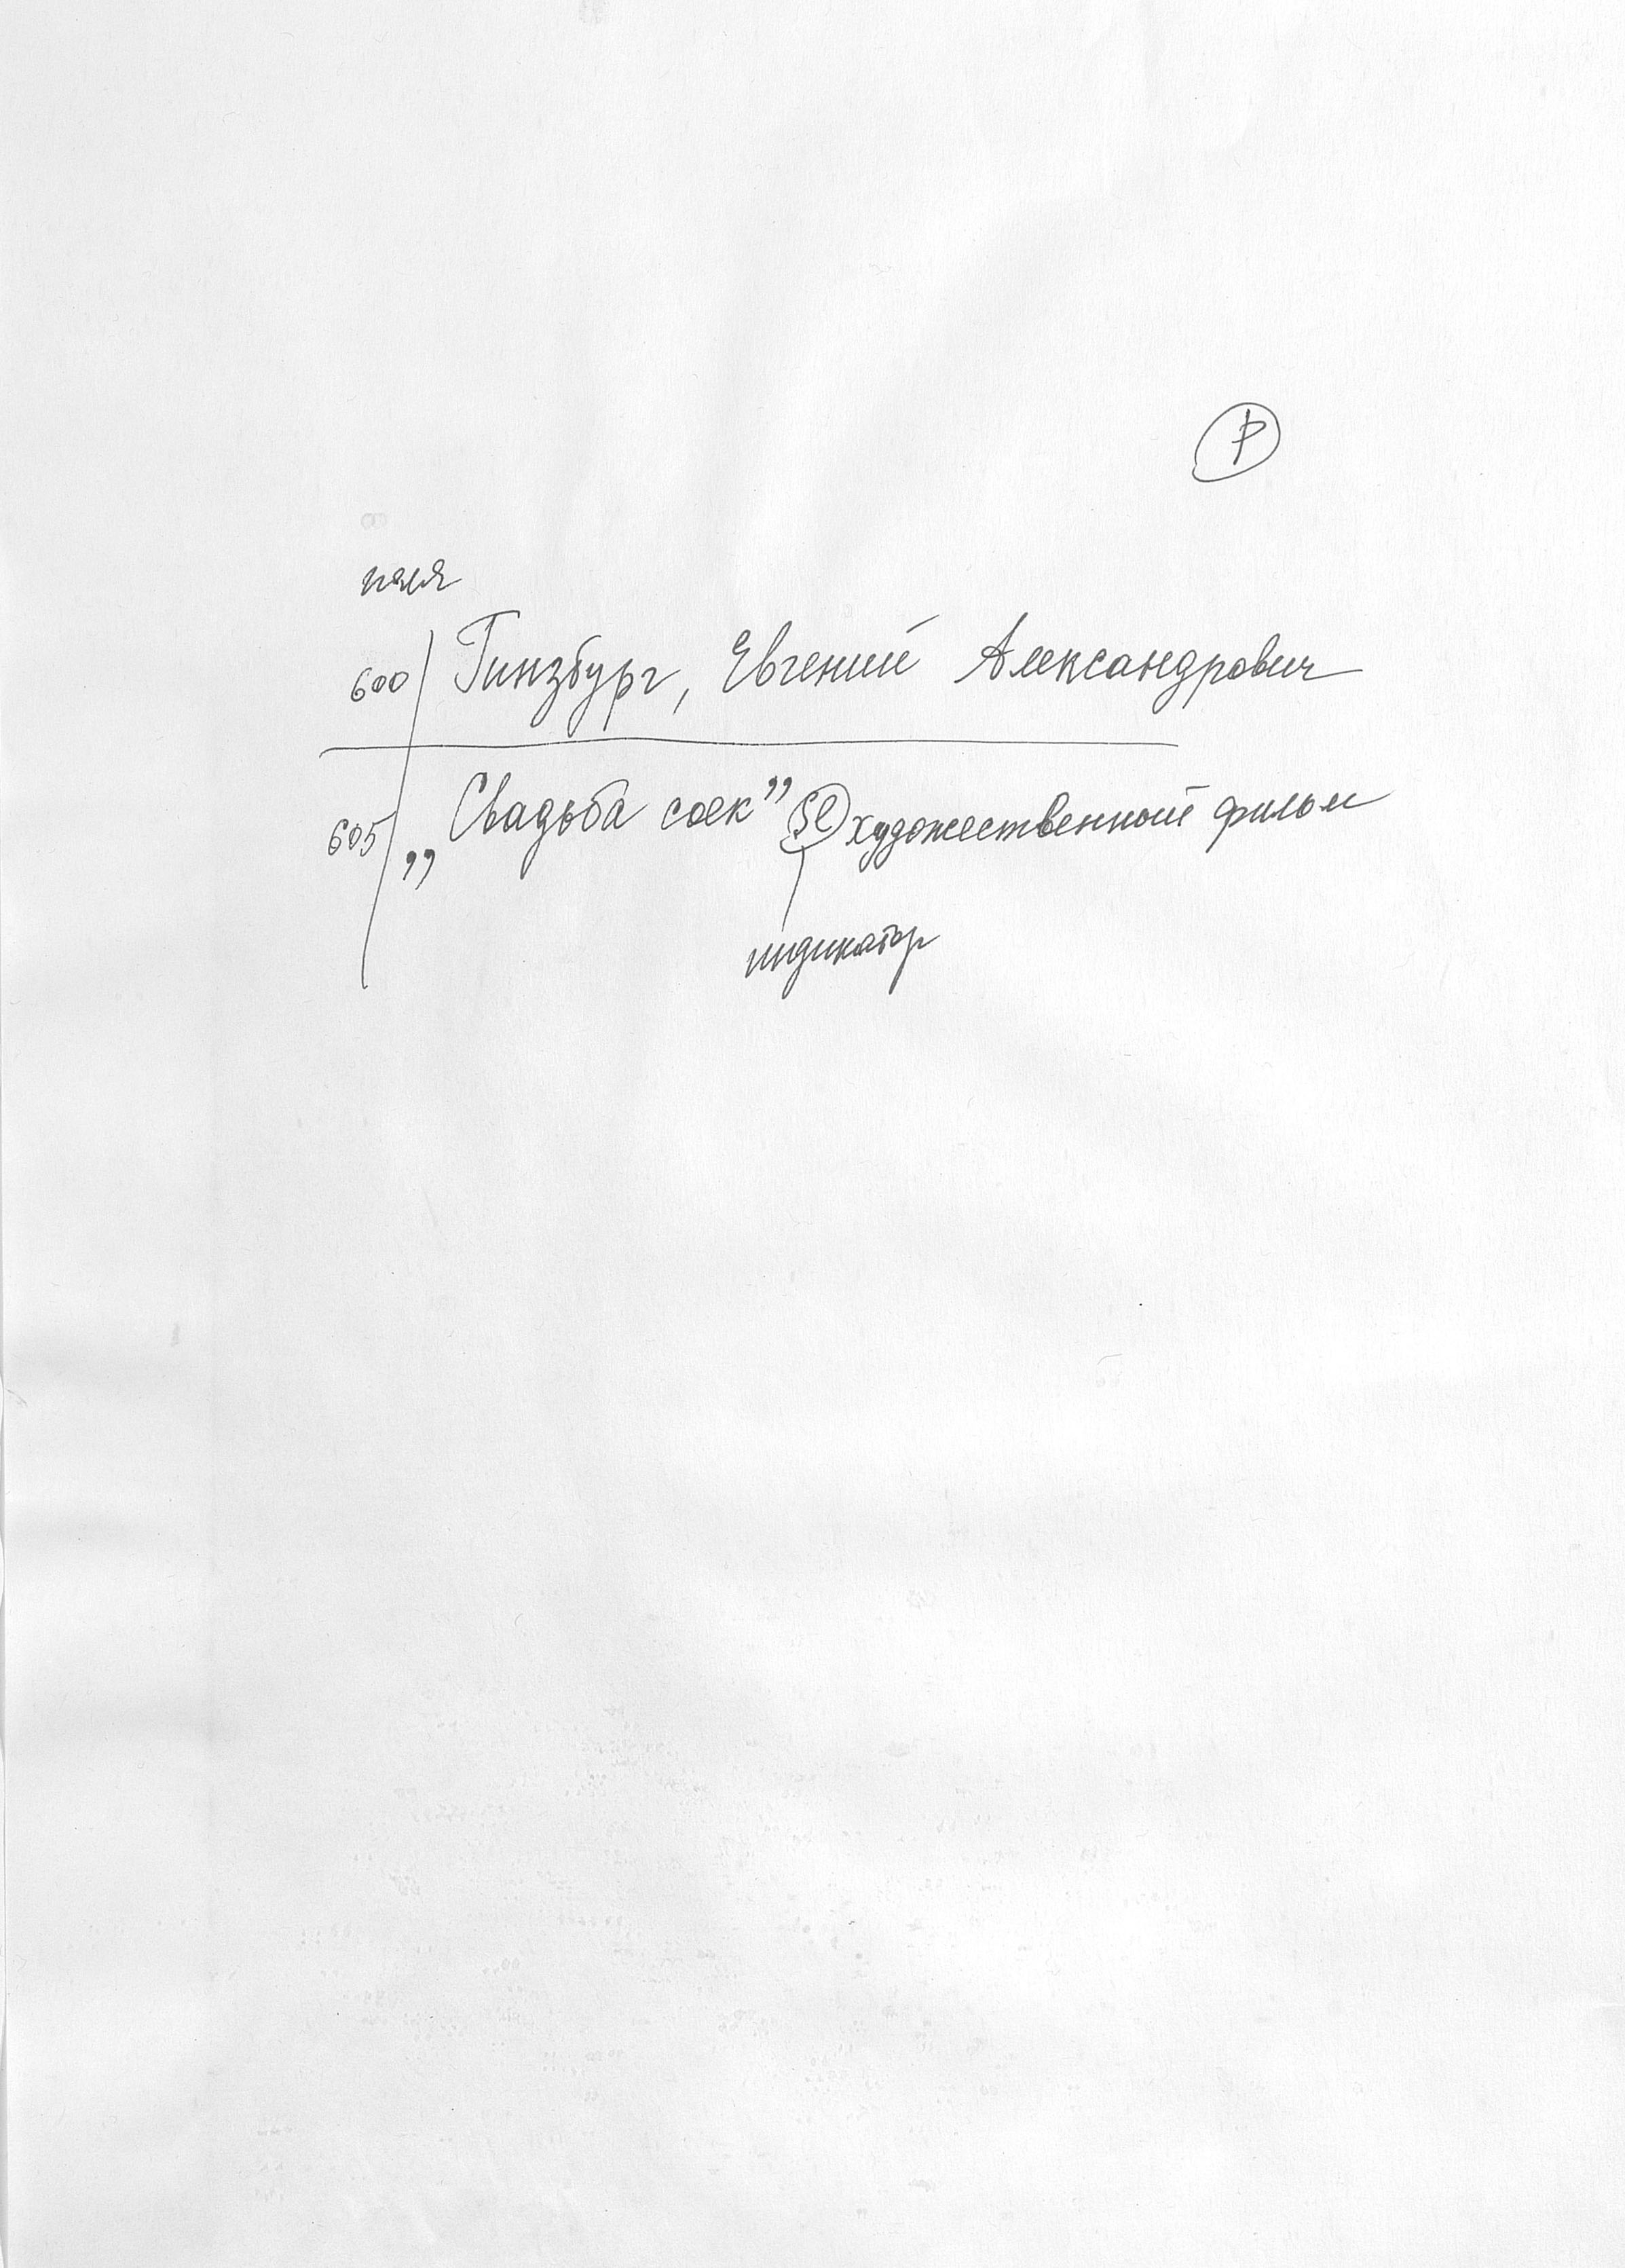 Р
поля
600 Гинзбург, Евгений Александрович
605 „Свадьба соек” $e художественный фильм
индикатор